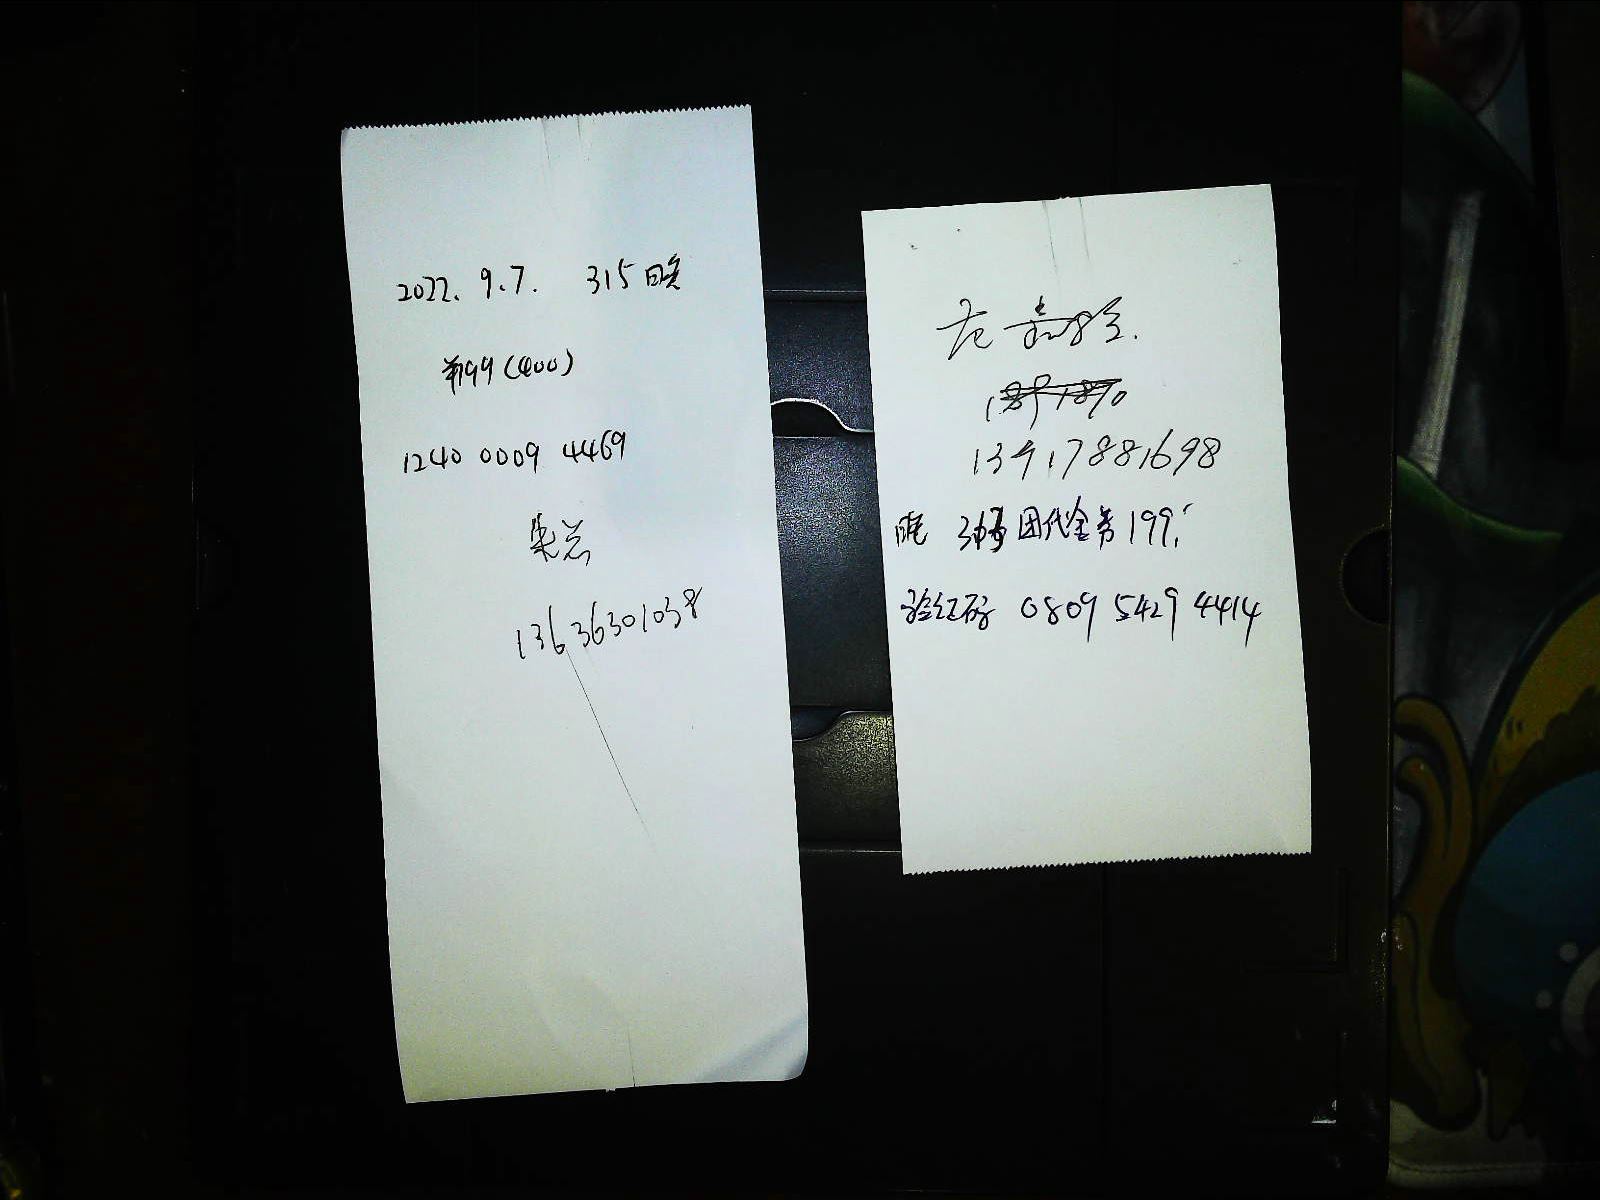 2022. 9.7. 315 晚
199 (400)
1240 0009 4469
朱总
13636301038
13917881698
晚 团代金券 199
验证码 0809 5429 4414